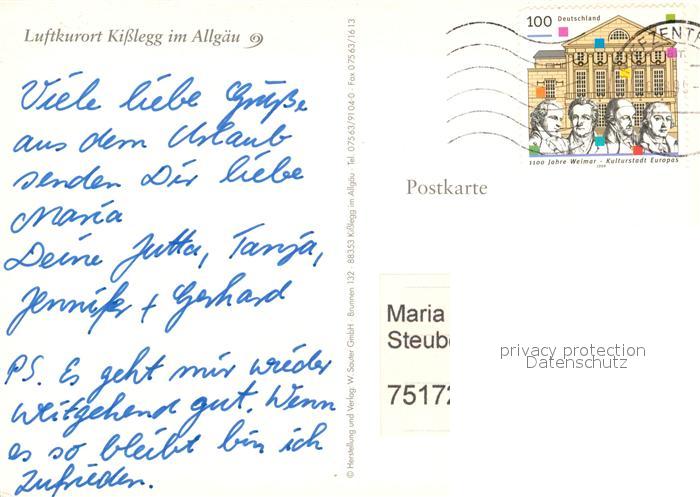 Luftkurort Kißlegg im Allgäu
Viele liebe Grüße
aus dem Urlaub
senden Dir liebe
Maria
Deine Jutta, Tanja,
Jennifer + Gerhard
PS. Es geht mir wieder
weitgehend gut. Wenn
es so bleibt bin ich
zufrieden.
© Herstellung und Verlag: W. Sauter GmbH · Brunnen 132 · 88353 Kißlegg im Allgäu · Tel. 07563/9104-0 · Fax 07563/1613
100 Deutschland
1100 Jahre Weimar - Kulturstadt Europas
1999
Postkarte
Maria
Steub
7517
privacy protection
Datenschutz